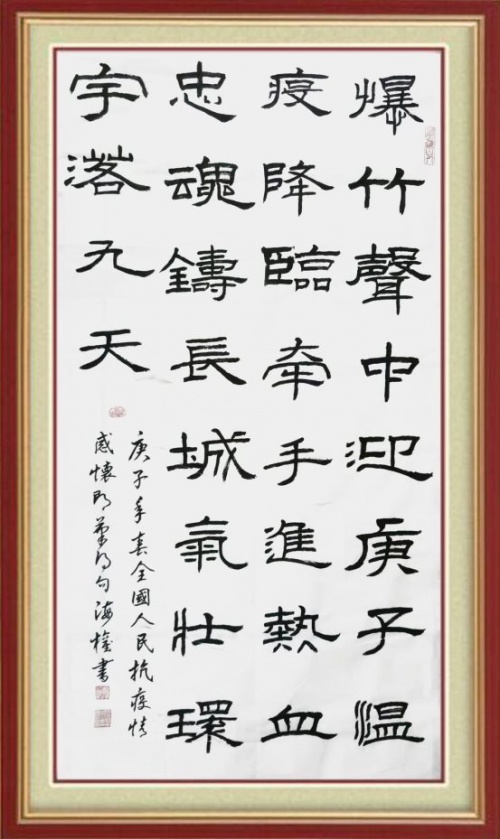 爆竹聲中迎庚子温
疫降臨牵手進熱血
忠魂鑄長城氣壯環
宇落九天
庚子年春全國人民抗疫情
感懷即筆得句海書